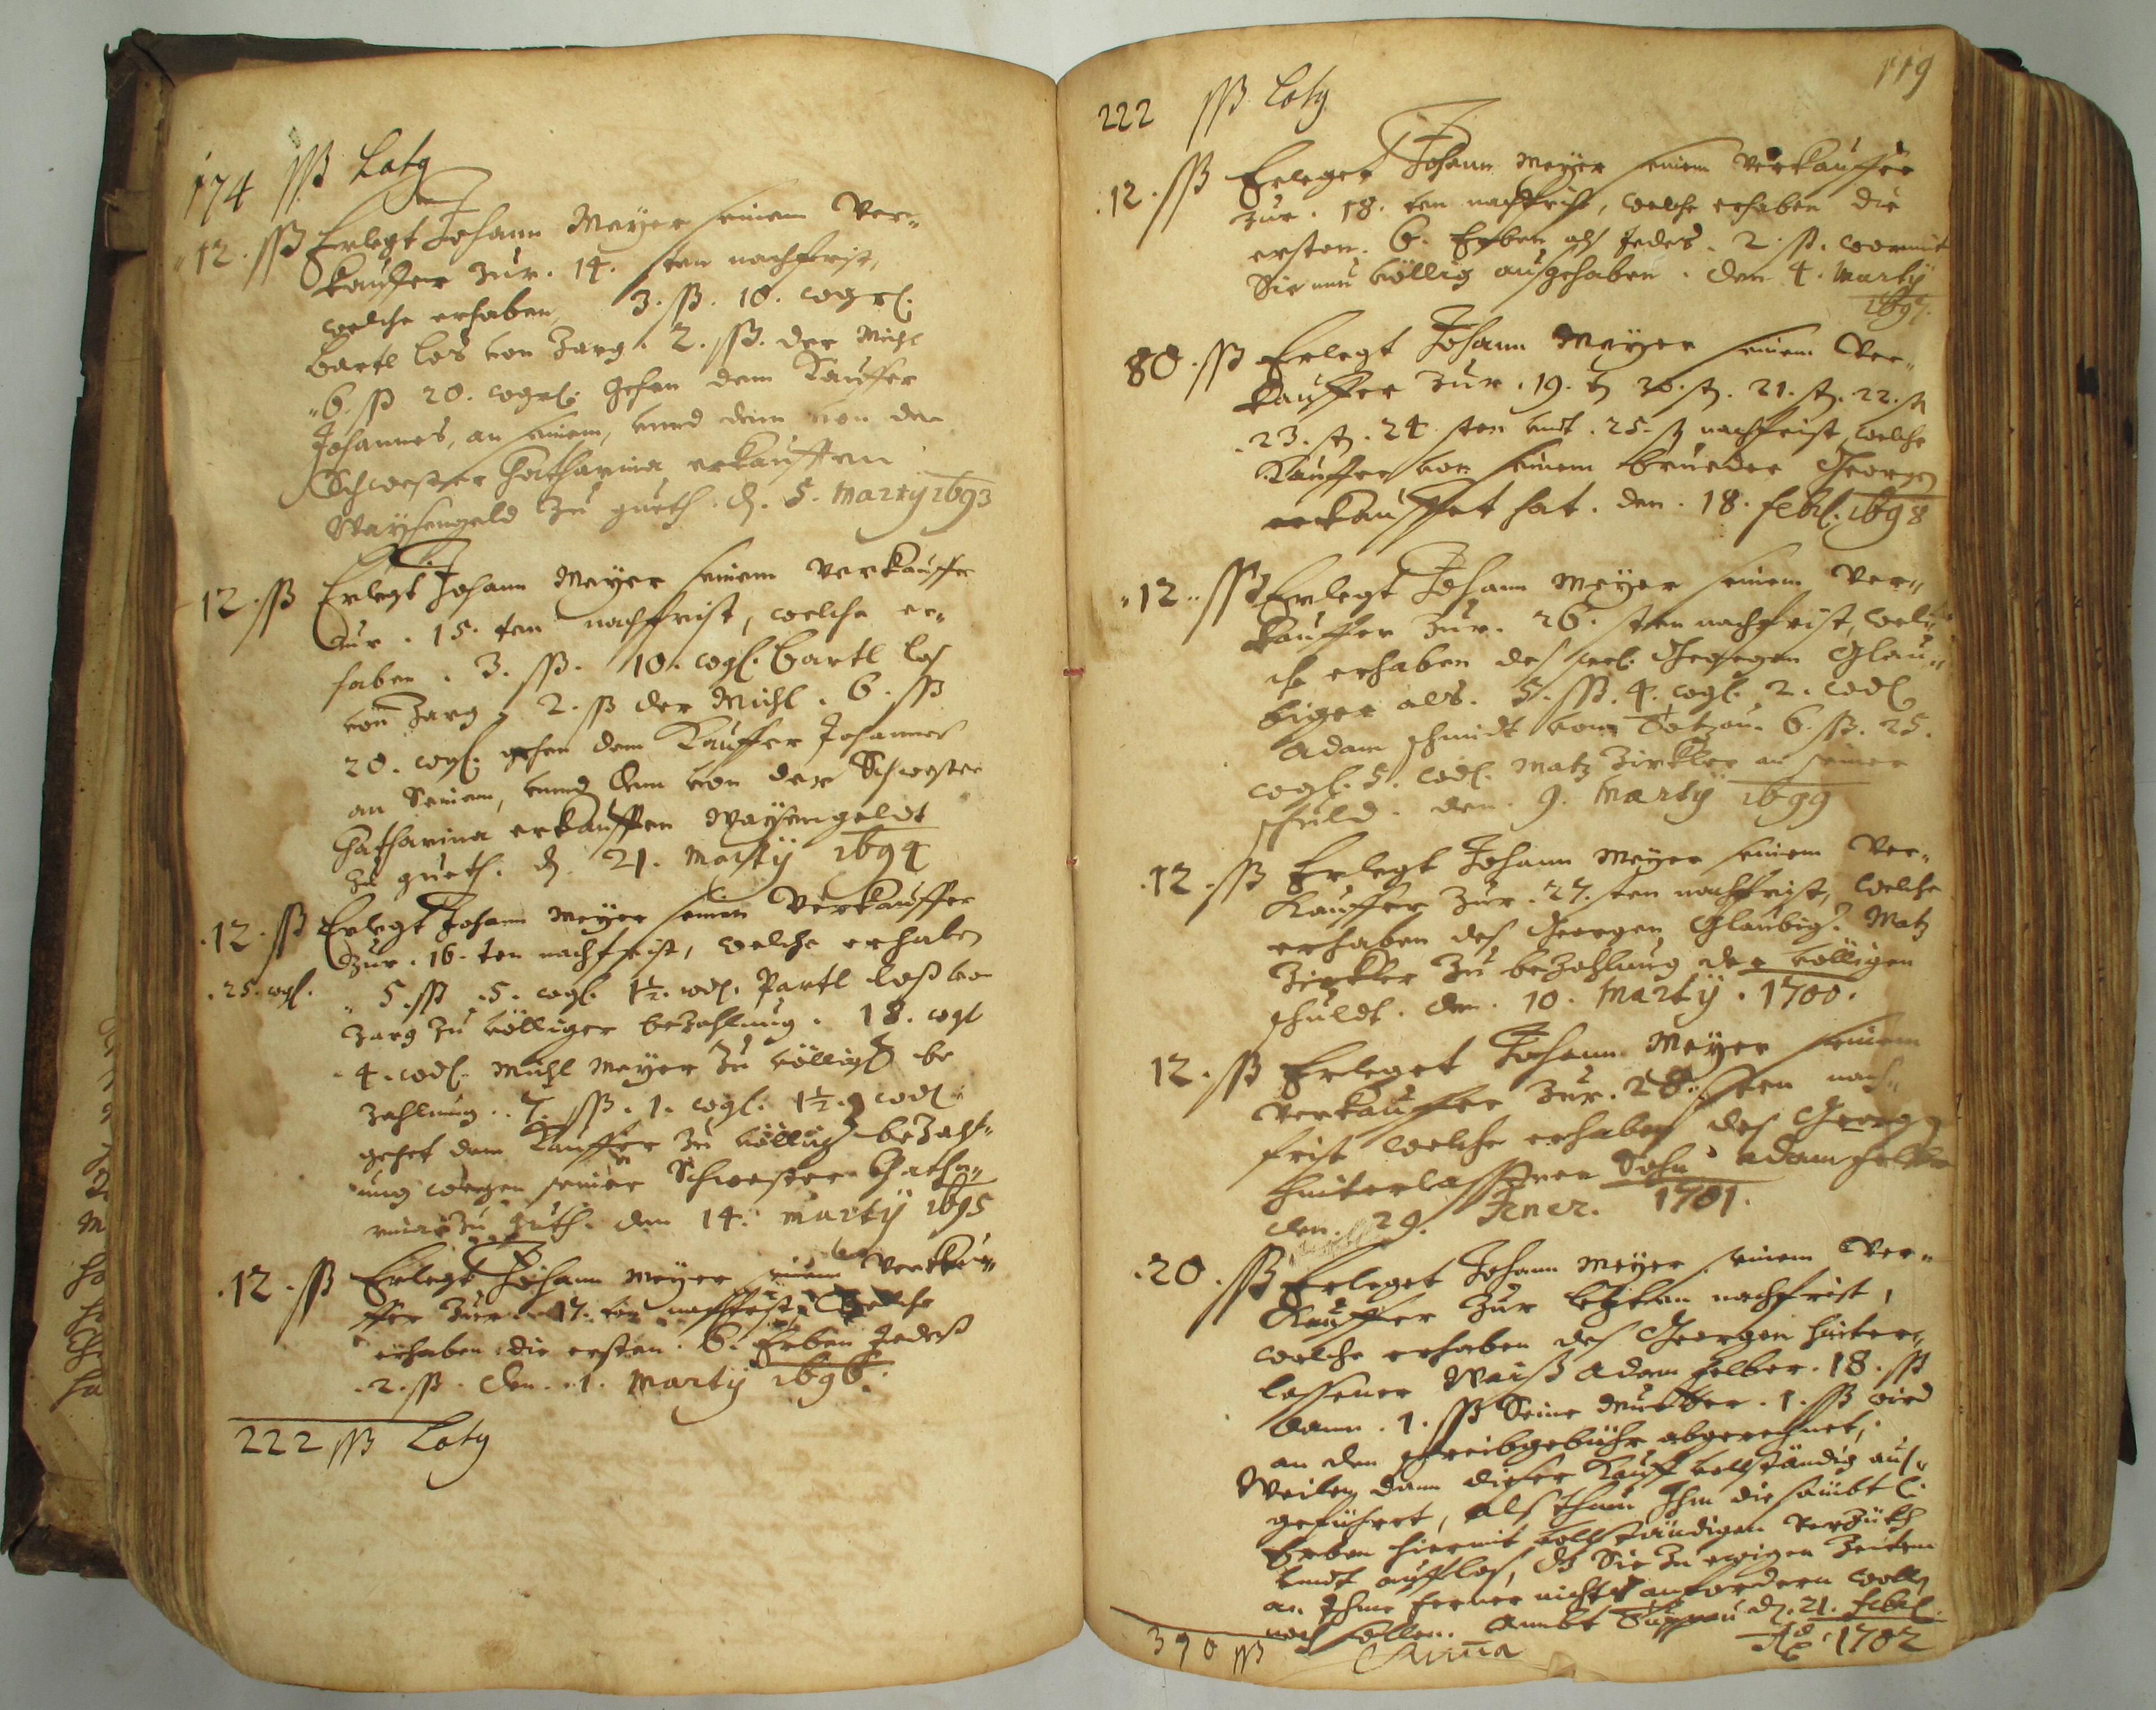 174 ßß Latg
12. ßß Erlegt Johann Meÿer seinem Ver=
kauffer Zur. 14. ten nachfrist,
welche erhaben, 3. ß. 10. wgrl.
Bartl los von Zarg. 2. ßß. der Michl
6. ß 20. wgrl. gehen dem Kauffer
Johannes, an seinem, unnd denn von der
Schwester Catharina erkaufften
Waysengeld Zu gueth. d. 5. Martÿ 1693
12. ß Erlegt Johann Meÿer seinem Verkauffer
Zur. 15. ten nachfrist, welche er=
haben. 3. ßß. 10. wgl. Bartl los
von Zarg, 2. ß der Michl. 6. ßß
20. wgl. gehen dem Kauffer Johannes
an Seinem, unnd denn von der Schwester
Catharina erkaufften Waysengeldt
Zu gueth. d. 21. Martÿ 1694
12. ß Erlegt Johann Meÿer seinem Verkauffer
Zur. 16. ten nachfrist, welche erhaben
25. wgl. 5. ßß 5. wgl. 1½. wdl. Partl loß von
Zarg Zu völliger bezahlung. 18. wgl
4. wdl. Michl Meÿer Zu völliger be
zahlung. 7. ßß. 1. wgl. 1½. wdl.
gehet dem Kauffer Zu völliger bezahl=
ung wegen seiner Schwester Catha=
rina Zu guth. den 14. Martÿ 1695
12. ß Erlegt Johann Meÿer seinem Verkau=
ffer Zur. 17. ten nachfrist, welche
erhaben die ersten. 6. Erben Jedes
2. ß. den. 1. Martÿ 1696.
222 ßß Latg
119
222 ßß Latg
12. ßß Erleget Johann Meÿer seinem Verkauffer
Zur. 18. ten nachfrist, welche erhaben die
ersten. 6. Erben als Jedes. 2. ß. wormit
Sie nun völlig ausgehaben. den 4. Martÿ
1697.
80. ß Erlegt Johann Meÿer seinem Ver=
kauffer Zur. 19. t 20. st. 21. st. 22. st
23. st. 24 sten undt. 25. st nachfrist, welche
Kauffer von seinem bruder Georgen
erkauffet hat. den. 18. febl. 1698
12. ßß Erlegt Johann Meÿer seinem Ver=
kauffer Zur. 26. sten nachfrist, wel=
che erhaben des seel. Georgen Glau=
biger als. 5. ßß. 4. wgl. 2. wdl
Adam schmidt von 6. ß. 25.
wgl. 5. wdl. Matz Zirkler an seiner
schuld. den. 9. Martÿ 1699
12. ß Erlegt Johann Meÿer seinem Ver=
Kauffer Zur. 27. sten nachfrist, welche
erhaben des Georgen Glaubig. Matz
Zirkler Zu bezahlung der völligen
schuldt. den. 10. Martÿ. 1700.
12. ß Erleget Johann Meÿer seinem
Verkauffer Zur. 28. sten nach=
frist welche erhaben des Georg
hinterlassener Sohn Adam felber
den. 29. Jener. 1701.
20. ßß Erleget Johann Meÿer seinem Ver=
Kauffer Zur letzten nachfrist,
welche erhaben des Georgen hinter=
lassener Waiß Adam felber. 18. ßß
dann. 1. ßß Seine Mutter. 1. ßß wird
an den schreibgebühr abgerechnet,
Weilen dann dieser Kauff vollständig aus=
geführet, als thuen Ihm die sämbtl.
Erben hiermit vollständigen verzücht
undt aufflas, das Sie Zu ewigen Zeiten
an Ihme ferner nichts anfordern wollen
noch sollen. Ambt d. 21. febl.
Ao 1702
390 ßß Suma